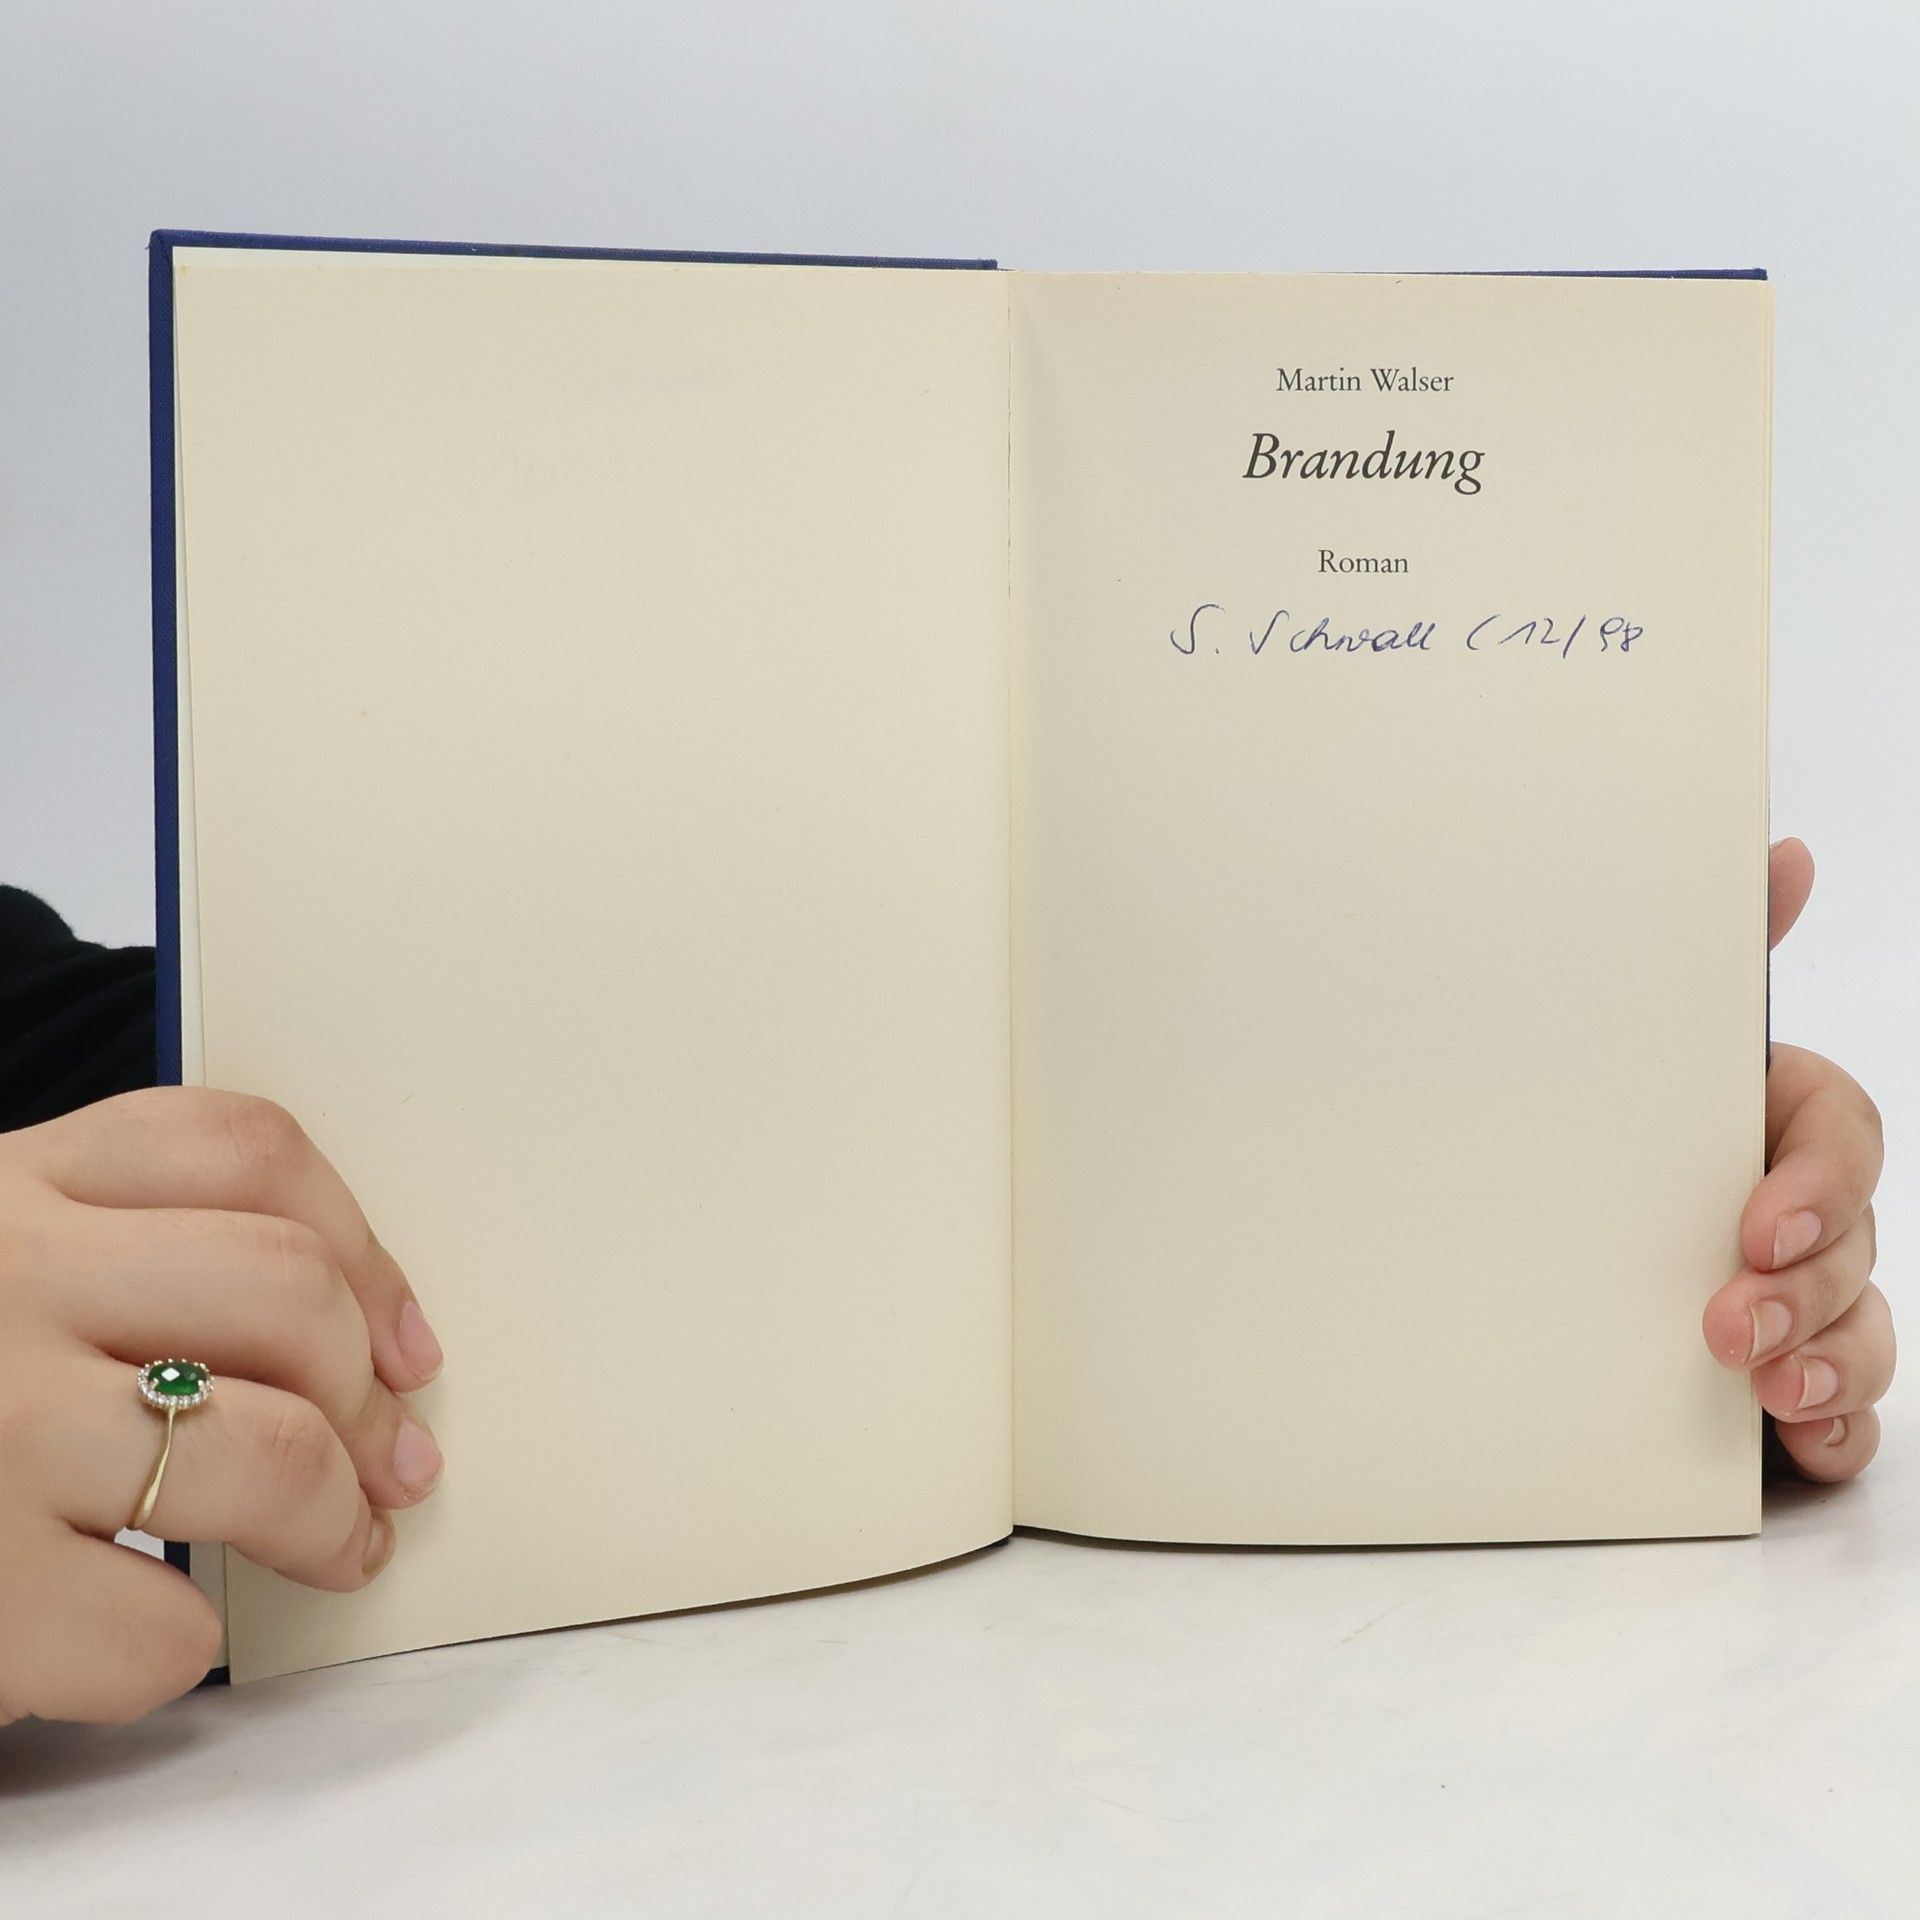 Martin Walser
Brandung
Roman
S. Schwall (12/98